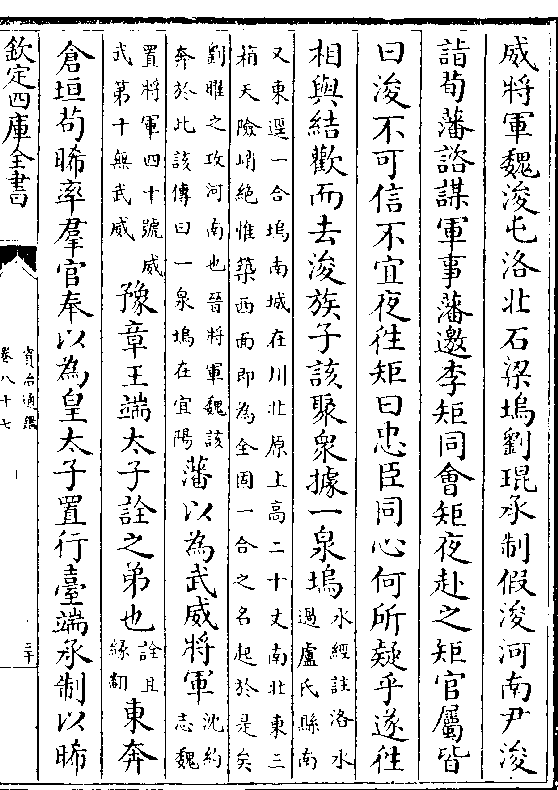 威將軍魏浚屯洛北石梁塢劉琨承制假浚河南尹浚
詣荀藩諮謀軍事藩邀李矩同會矩夜赴之矩官屬皆
曰浚不可信不宜夜往矩曰忠臣同心何所疑乎遂往
相與結歡而去浚族子該聚衆據一泉塢水經註洛水
過盧氏縣南
又東逕一合塢南城在川北原上高二十丈南北東三
箱天險峭絶惟築西面即為全固一合之名起於是矣
劉曜之攻河南也晉將軍魏該
奔於此該傳曰一泉塢在宜陽
藩以為武威將軍沈約
志魏
置將軍四十號威
武第十無武威
豫章王端太子詮之弟也詮且
緣翻
東奔
倉垣苟晞率羣官奉以為皇太子置行臺端承制以晞
欽定四庫全書
資治通鑑
卷八十七
三十